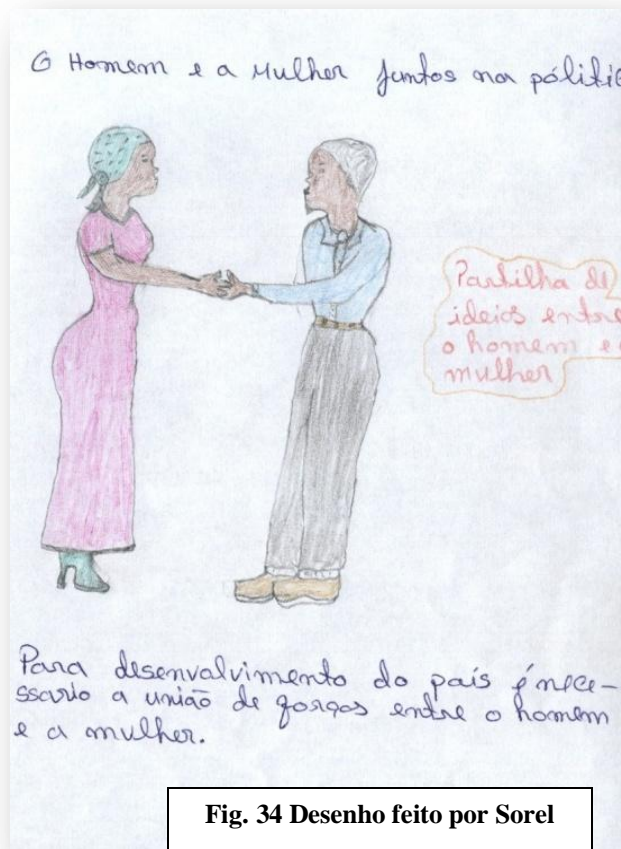 O Homem e a Mulher juntos na póliti
Partilha de
ideios entre
o homem e a
mulher
Para desenvalvimento do país é nece-
ssario a união de forças entre o homem
e a mulher.
Fig. 34 Desenho feito por Sorel